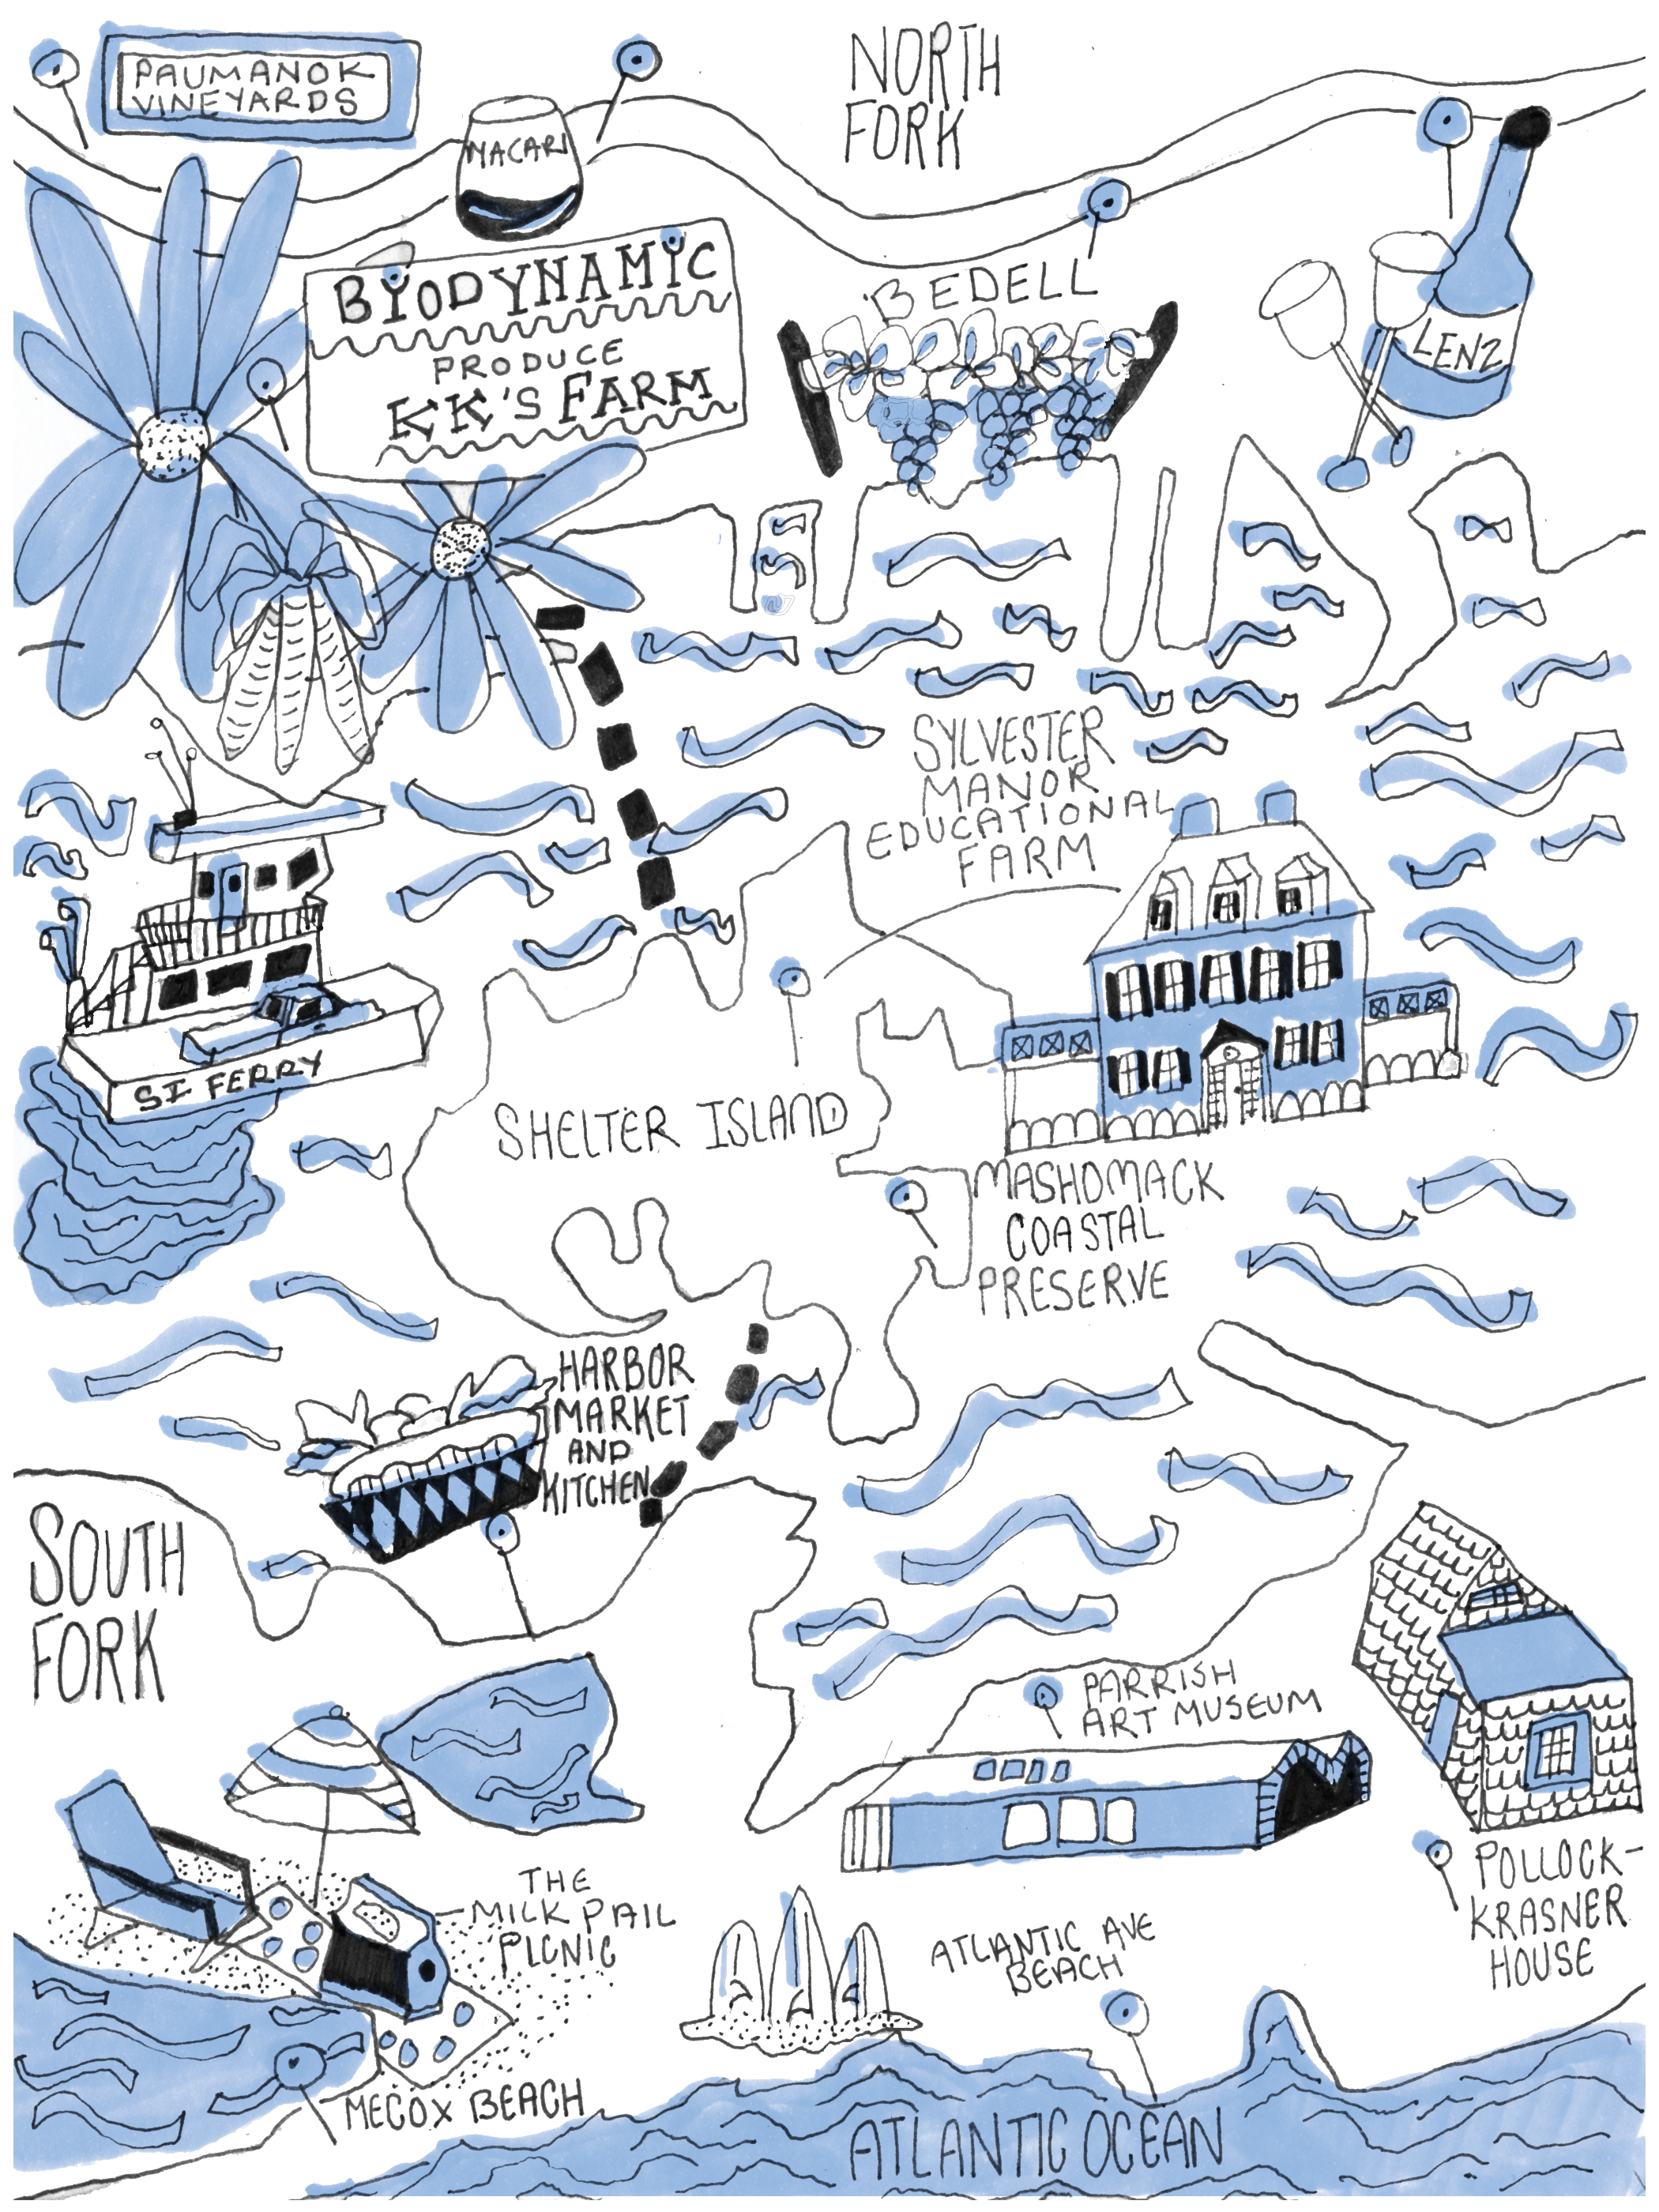 PAUMANOK
VINEYARDS
NORTH
FORK
MACARI
BIODYNAMIC
PRODUCE
KK'S FARM
BEDELL
LENZ
SYLVESTER
MANOR
EDUCATIONAL
FARM
SI FERRY
SHELTER ISLAND
MASHOMACK
COASTAL
PRESERVE
HARBOR
MARKET
AND
KITCHEN
SOUTH
FORK
PARRISH
ART MUSEUM
POLLOCK-
KRASNER
HOUSE
THE
MILK PAIL
PICNIC
ATLANTIC AVE
BEACH
MECOX BEACH
ATLANTIC OCEAN